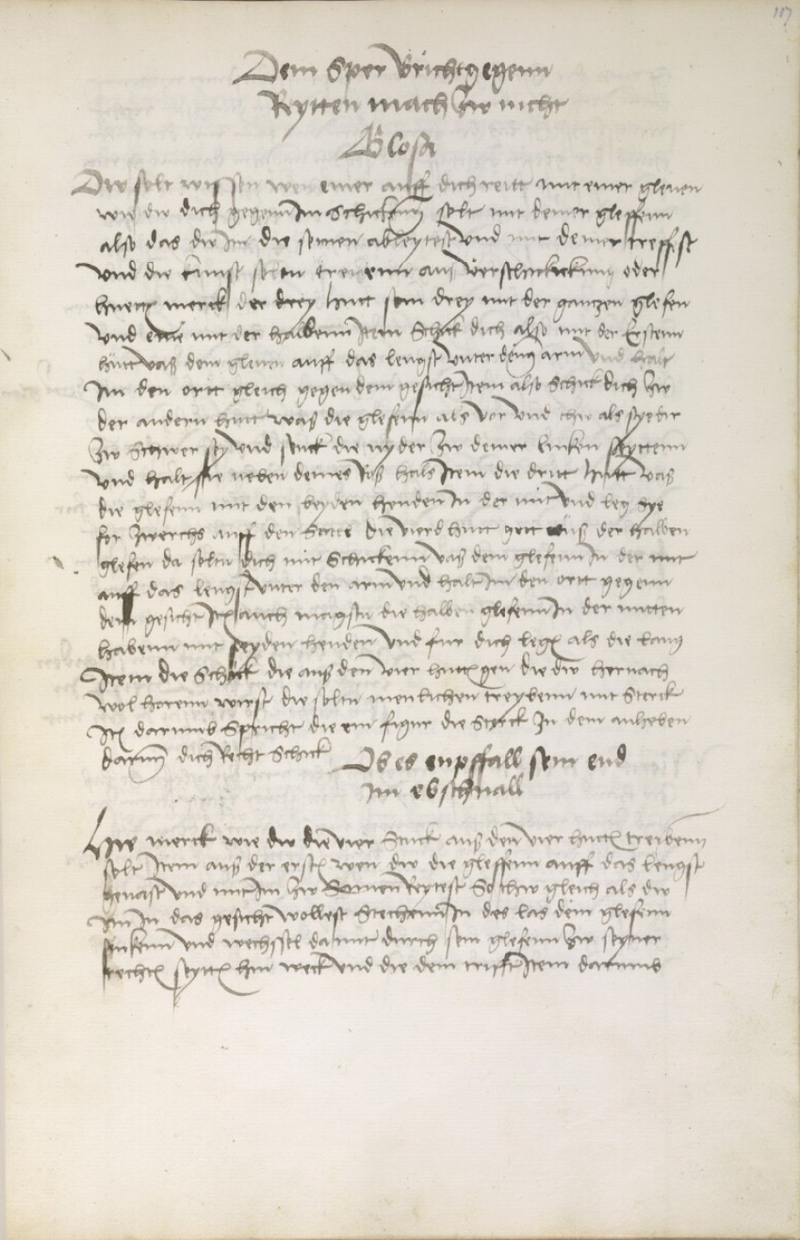 107
Dein Sper bricht gegenn
Reytten mach zw nicht
Glosa
Dw solt wissen wen einer auff dich reitt mit einer gleuen
wie dw dich gegenn Im Schicken solt mit deiner gleffenn
also das dw Im die seinen ableytest Und mit deiner treffst
Und die kunst soltu treibenn aus
huetten merck der drey hutt sein drey mit der gantzen glefen
Und eine mit der halbenn Item Schick dich also mit der Erstenn
hutt vas dein gleuen auff das lengst Unter deinen arm Und halt
Im den ortt gleich gegen dem gesicht Item also Schick dich zw
der andern hutt vas die glefenn als vor Und thw als sye dir
zw Schwer sey Und senck die nyder zw deiner lincken seyttenn
Und halt sie neben deines Ros hals Item die dritt hutt vas
die glefenn mit den beyden henden In der mit Und leg sye
for zwerchs auff den Sattel die vierd hutt gett aus der halben
glefen da soltu dich mit Schickenn vas dein glefenn In der mitt
auff das lengst Unter den arm Und halt Im den ortt gegenn
dem gesicht Item auch magstu die halben glefenn In der mitten
habenn mit beyden henden Und fur dich legen als die lang
Item die Schick die aus den vier hutten gen die dw hernach
wol horenn wirst die soltu menlichen treybenn mit Sterck
Item darumb Spricht die ein figur die Styrck In dem anheben
darinn dich Recht Schick
Ob es enpffall sein end
Im abschnall
Hie merck wie dw die vier Stuck aus den vier hutten treibenn
solt Item aus der ersten wen dw die gleffenn auff das lengst
gevast Und mit Im zw Samen Reytest So thw gleich als dw
Im In das gesicht wollest Stechenn In des las dein glefenn
sinkenn Und wechsstl damit durch sein glefenn zw seyner
rechten seytten hin weck Und die dein trifft Item darumb